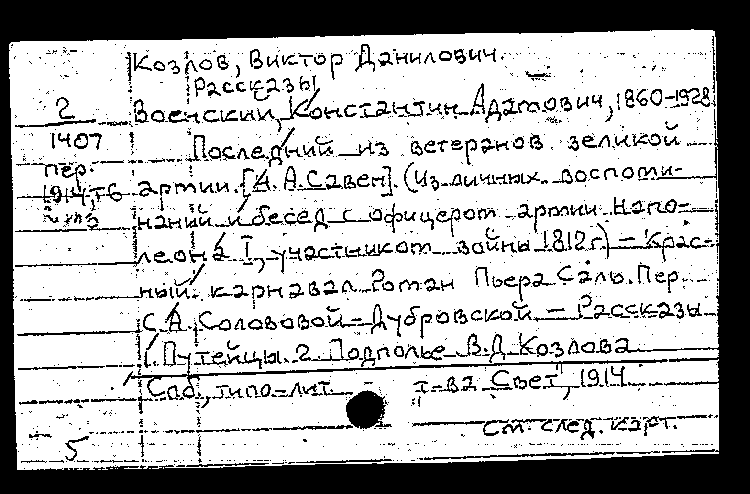 Козлов, Виктор Данилович.
Рассказы
2
Военский, Константин Адамович, 1860-1928
1407
Последний из ветеранов великой
пер.
армии. [А. А. Савен]. (Из личных воспоми-
1914, т 6
наний и бесед с офицером армии Напо-
№ 3
леона I, участником войны 1812 г.) – Крас-
ный карнавал. Роман Пьера Саль. Пер.
С. А. Солововой-Дубровской. – Рассказы
1. Путейцы. 2. Подполье В. Д. Козлова
Спб., типо-лит. т-ва "Свет", 1914
См. след. карт.
5